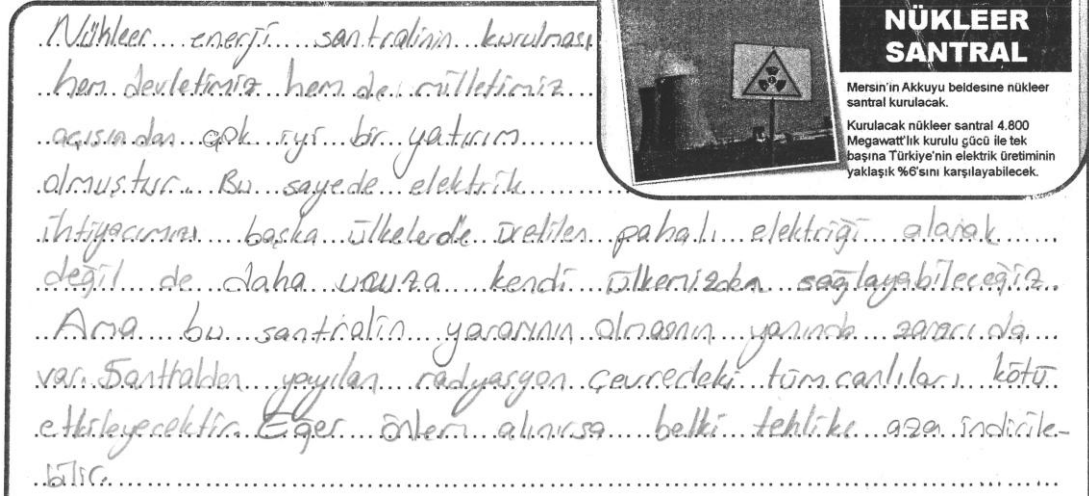 Nükleer enerji santralinin kurulması
hem devletimiz hem de milletimiz
açısından çok iyi bir yatırım
olmuştur. Bu sayede elektrik
ihtiyacımızı başka ülkelerde üretilen pahalı elektriği alarak
değil de daha ucuza kendi ülkemizden sağlayabileceğiz.
Ama bu santralin yararının olmasının yanında zararı da
var. Santralden yayılan radyasyon çevredeki tüm canlıları kötü
etkileyecektir. Eğer önlem alınırsa belki tehlike aza indirile-
bilir.
NÜKLEER
SANTRAL
Mersin'in Akkuyu beldesine nükleer
santral kurulacak.
Kurulacak nükleer santral 4.800
Megawatt'lık kurulu gücü ile tek
başına Türkiye'nin elektrik üretiminin
yaklaşık %6'sını karşılayabilecek.